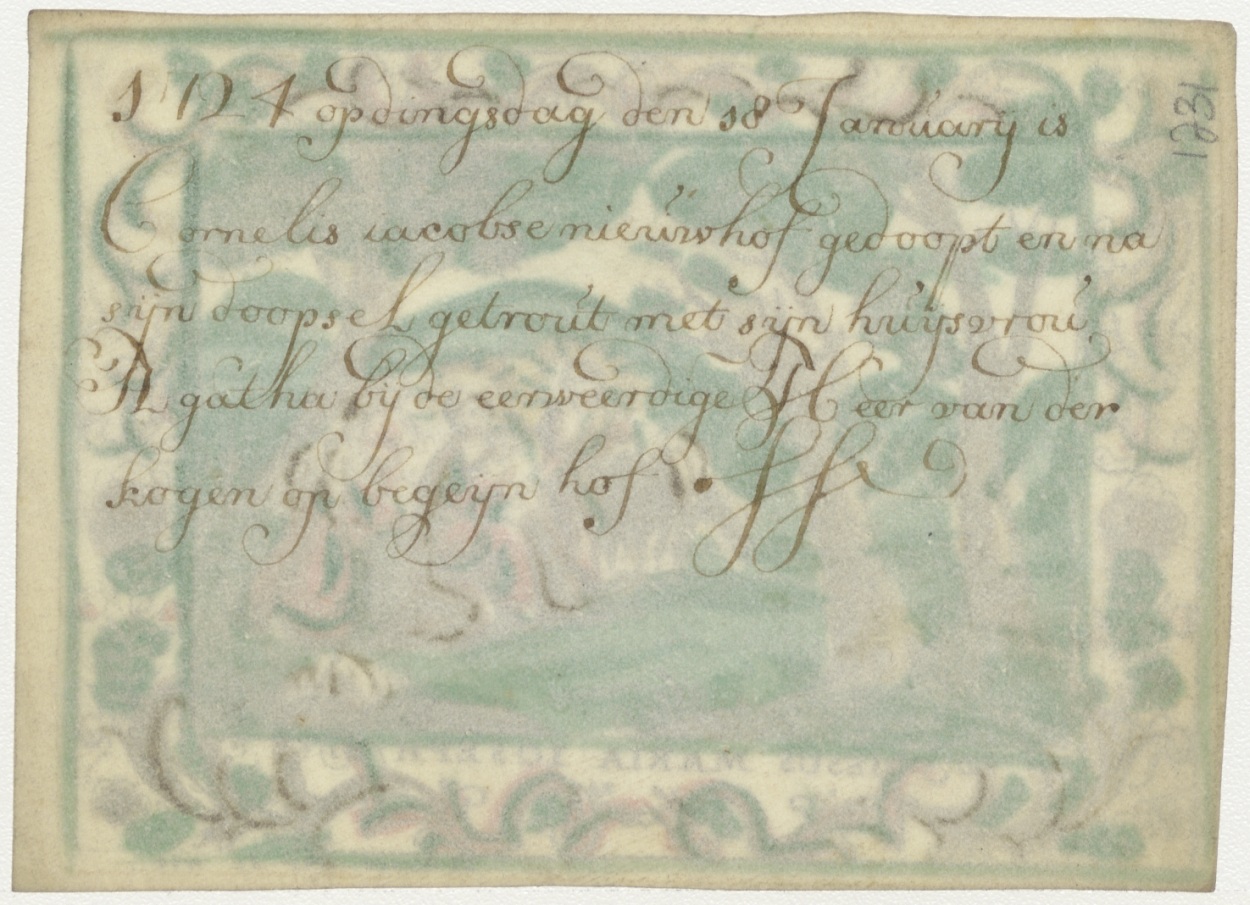 1724 op dingsdag den 18 Januarij is
Cornelis iacobse nieuwhof gedoopt en na
sijn doopsel getrout met sijn huijsvrou
Agatha bij de eerweerdige Heer van der
kogen op begeijn hof.
JESUS MARIA JOSEPH
1231